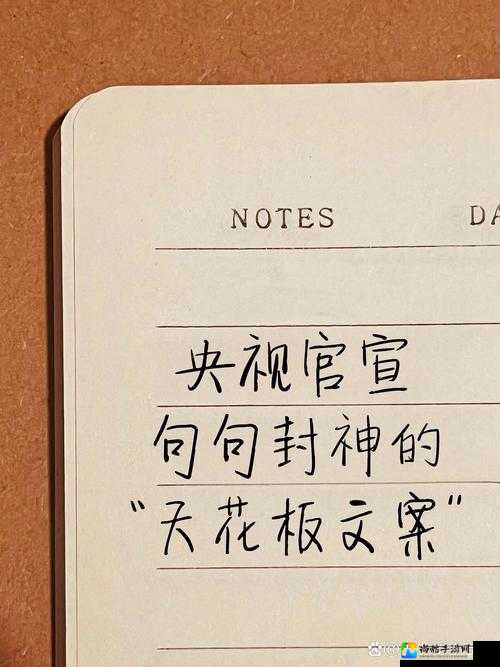 NOTES
DA
央视官宣
句句封神的
“天花板文案”